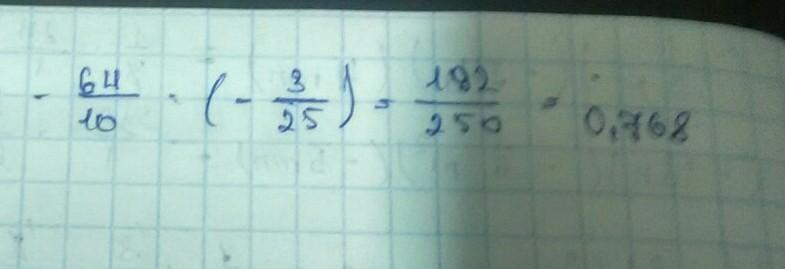 - 64/10 · (- 3/25) = 192/250 = 0,768